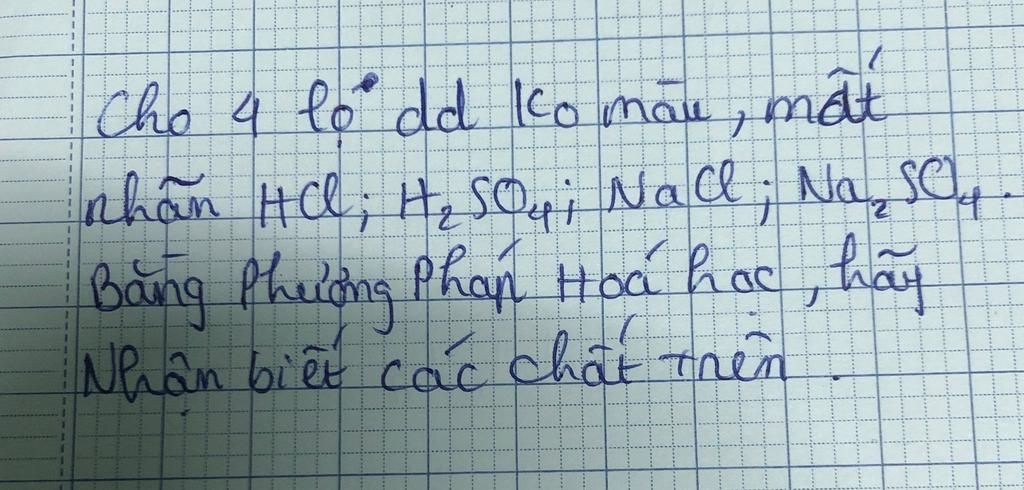 Cho 4 lọ dd ko màu, mất
nhãn HCl; H₂SO₄; NaCl; Na₂SO₄.
Bằng Phương Pháp Hoá học, hãy
Nhận biết các chất trên.